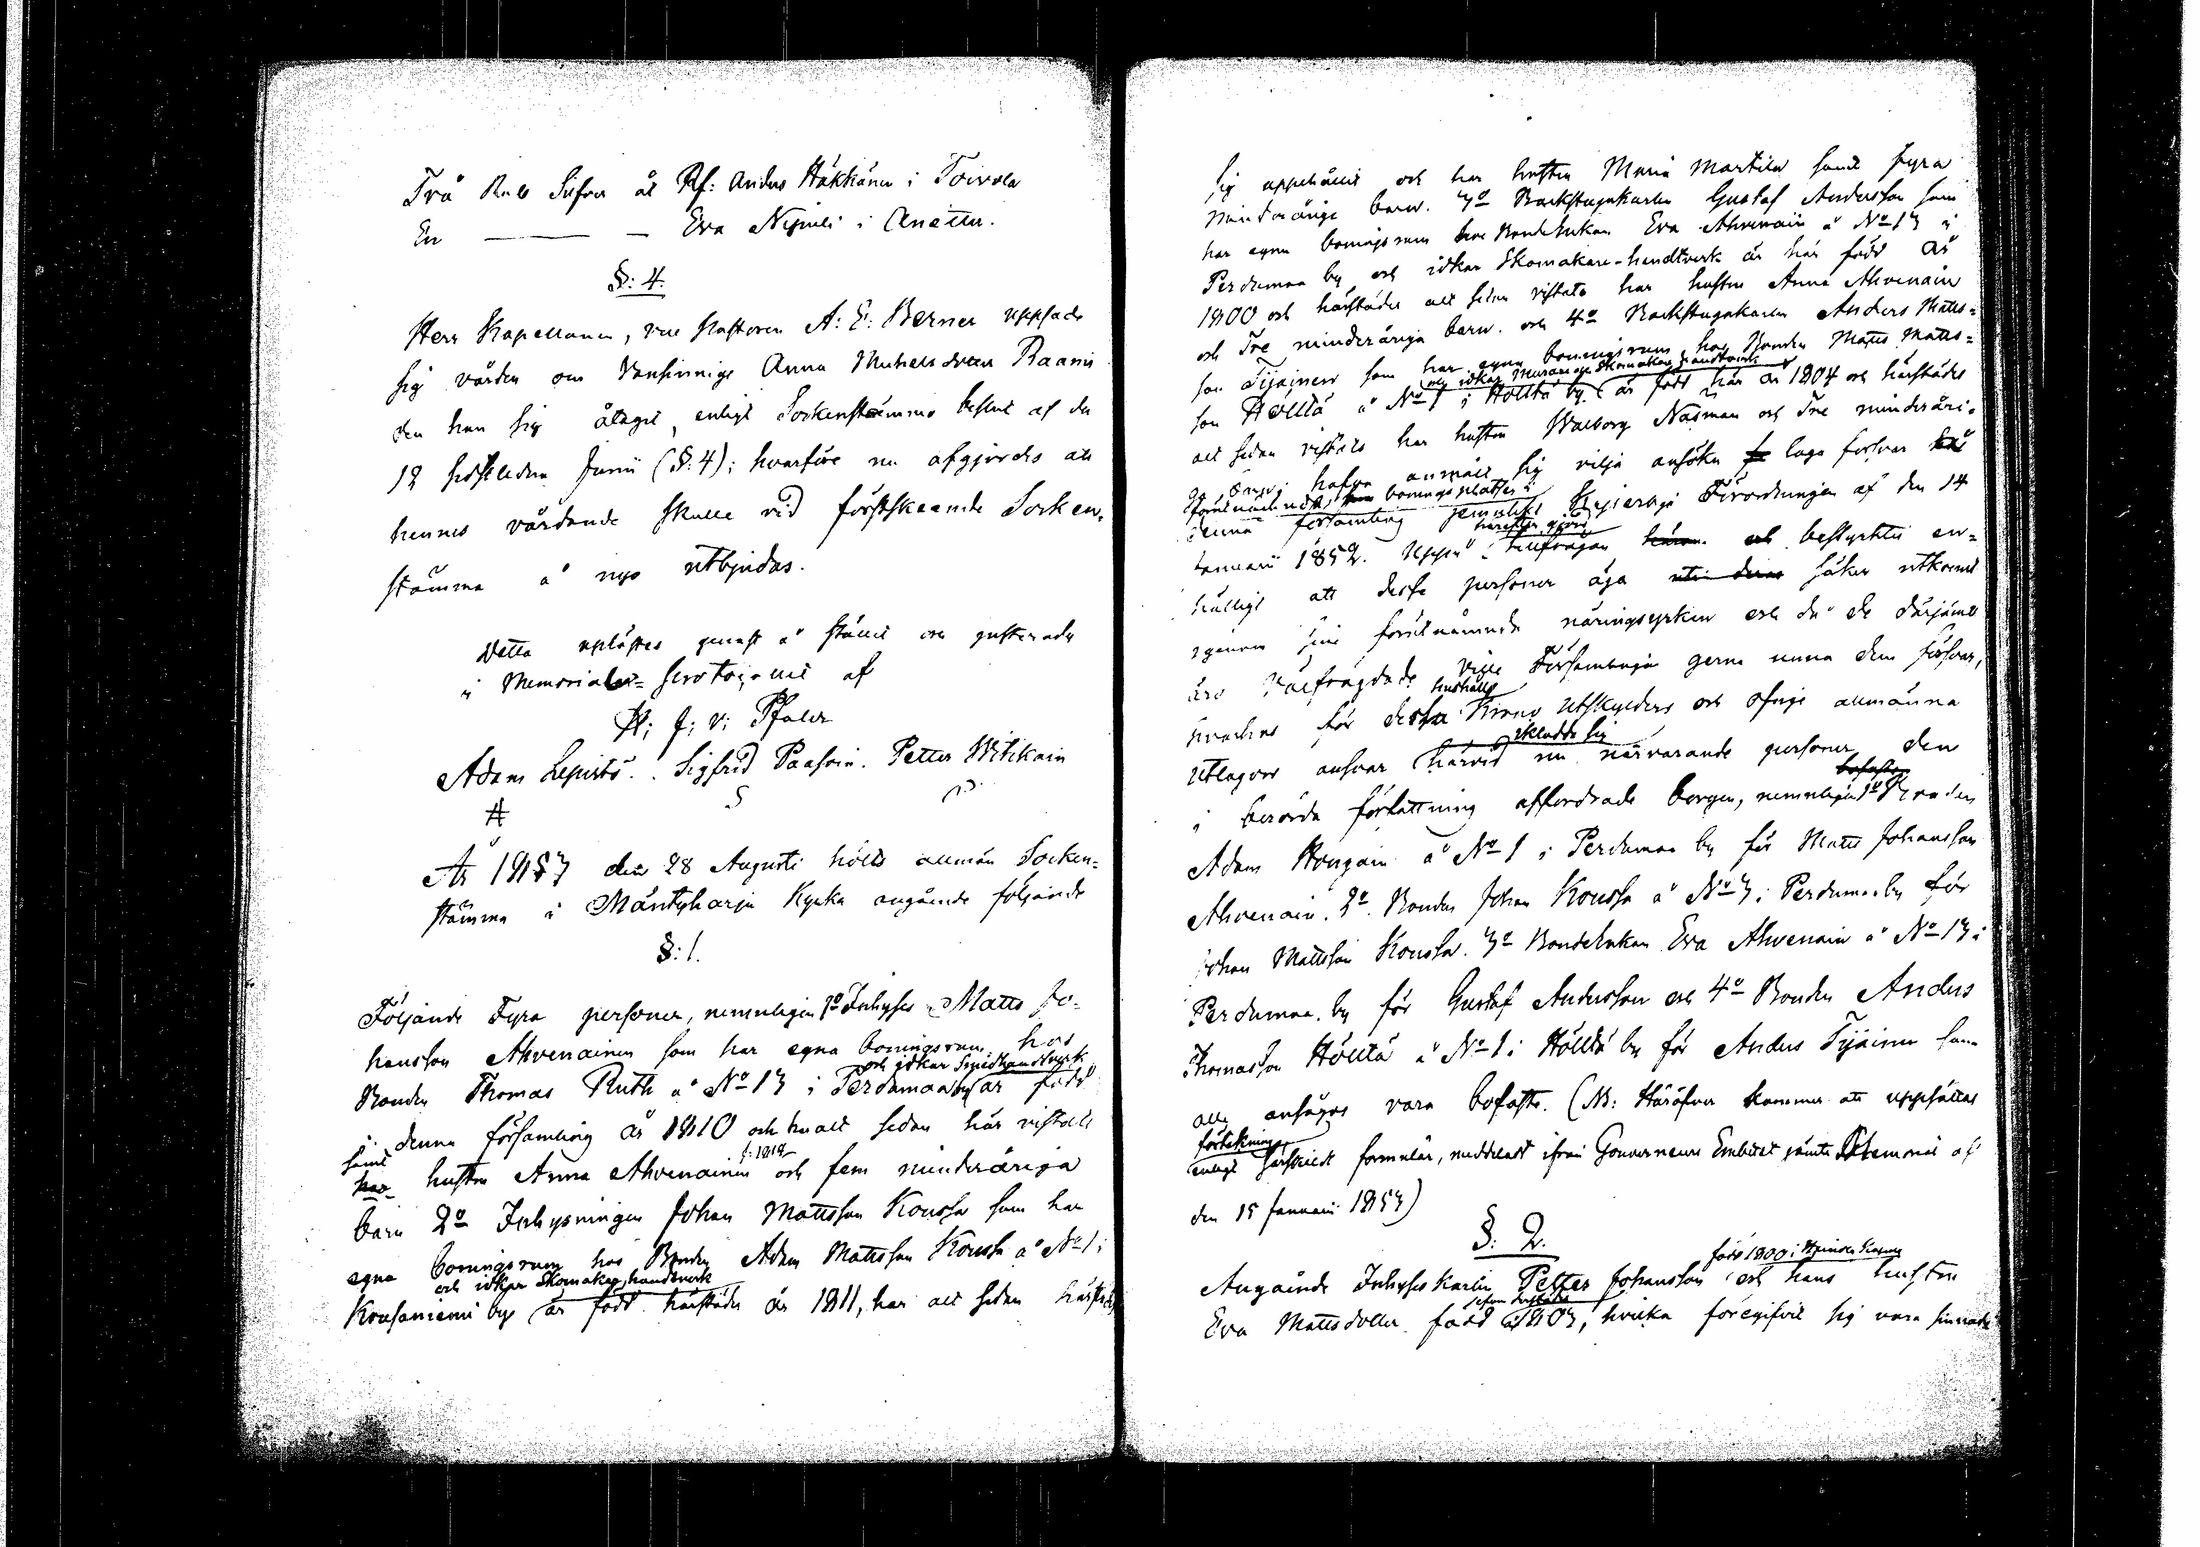 Två Rub Silfver åt Rf: Anders Häkkänen i Toivola
En ——— — Eva Nijuli i Anettu.
§: 4.
Herr Kapellanen, vice Pastoren A: E: Berner uppsade
sig vården om Vansinniga Anna Michelsdotter Paanu
den han sig åtagit, enligt Sockenstämmo beslut af den
12 sistledne Junii (§. 4); hvarföre nu afgjordes att
hennes vårdande skulle vid förstskeende Socken-
stämma å nyo utbjudas.
Detta uplästes genast å stället och justerades
i Memorial-Protocollet af
H: J: v: Pfaler
Adam Lepistö. Sigfrid Paasoin. Petter Witikain
År 1853 den 28 Augusti hölts allmän Socken-
stämma i Mäntyharju Kyrka angående följande
§: 1.
Följande Fyra personer, nemmligen 1o Inhyses Matts Jo-
hansson Ahvenainen som har egna boningsrum hos
och idkar Smidhandtverk
Bonden Thomas Ruth å No 13 i Perdumaa by är född
i denna församling år 1810 och har alt sedan här vistats
samt f: 1818
har hustru Anna Ahvenainen och fem minderåriga
barn 2o Inhysningen Johan Mattsson Kousa som har
egna boningsrum hos Bonden Adam Mattsson Kousa å No 1 i
och idkar Skomakare handtverk
Kousaniemi by är född härstädes år 1811, har alt sedan härstädes
sig uppehållit och har hustru Maria Martikain samt fyra
minderåriga barn. 3o Backstugukarlen Gustaf Andersson som
har egna boningsrum hos Bondeenkan Eva Ahvenain å No 13 i
Perdumaa by och idkar Skomakare-handtverk är här född År
1800 och härstädes alt sedan vistats har hustru Anna Ahvenain
och Tre minderåriga barn. och 4o Backstugukarlen Anders Matts-
son Tijainen som har egna boningsrum hos Bonden Matts Matts-
och idkar Skomakare handtverk
son Hölltä å No 1 i Hölltä by är född här år 1804 och härstädes
alt sedan vistats har hustru Walborg Näsman och Tre minderåri-
ga barn; hafva anmält sig vilja ansöka laga försvar
förutnämnde boningsplatser i
denna församling jemlikt Kejserliga Förordningen af den 14
härefter gjord
Januarii 1852. Uppå tillfrågan bestyrktes en-
hälligt att dessa personer äga säker utkomst
genom sine förutnämnde näringsyrken och då de därjämte
äro välfrägdade ville Församlingen gerna unna dem försvar,
hushålls
för dessa Krono Utskylder och öfrige allmänna
iklädde sig
Utlagor ansvar härvid nu närvarande personer den
bofaste
i berörda författning affordrade borgen, nemmligen 1o Bonden
Adam Hongain å No 1 i Perdumaa by för Matts Johansson
Ahvenain. 2o. Bonden Johan Kousa å No 3 i Perdumaa by för
Johan Mattsson Kousa. 3o Bondeenkan Eva Ahvenain å No 13 i
Perdumaa by för Gustaf Andersson och 4o Bonden Anders
Thomasson Hölltä å No 1 i Hölltä by för Anders Tijainen som
alla ansågos vara bofaste. (NB: Häröfver kommer att uppsättas
förtekning
enligt särskildt formulär, meddeladt ifrån Gouverneurs Embetet jämte Memorial af
den 15 Januarii 1853)
§: 2.
född 1800 i
Angående Inhyseskarlen Petter Johansson och hans hustru
Eva Mattsdotter född 1803, hvilka föregifvit sig vara sinnade